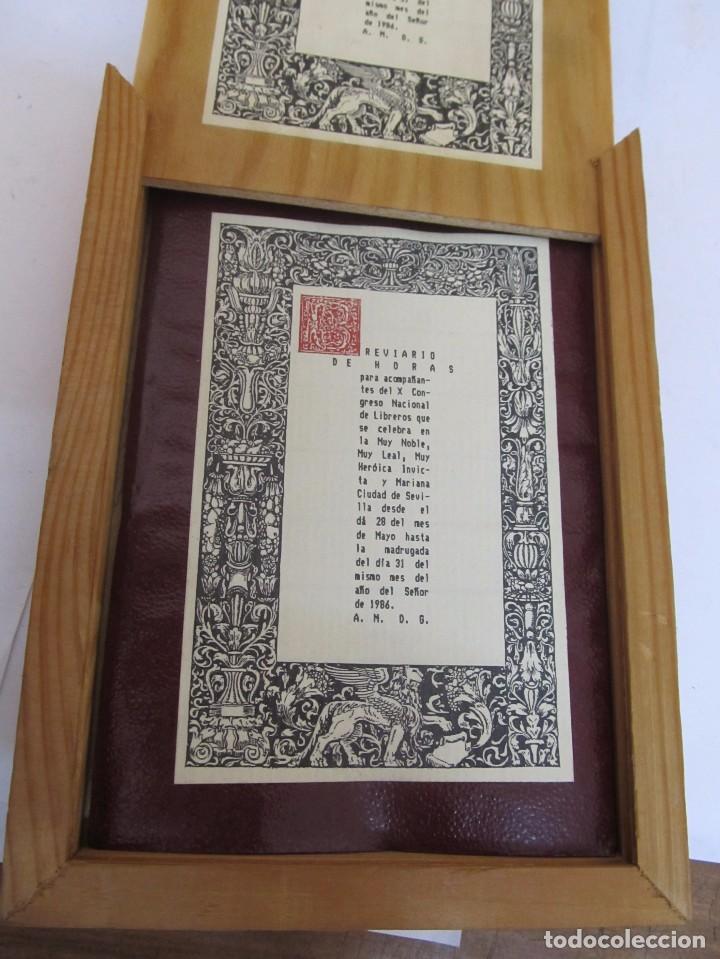 31 del
mismo mes del
año del Señor
de 1986.
A. M. D. G.
BREVIARIO
DE HORAS
para acompañan-
tes del X Con-
greso Nacional
de Libreros que
se celebra en
la Muy Noble,
Muy Leal, Muy
Heróica Invic-
ta y Mariana
Ciudad de Sevi-
lla desde el
dá 28 del mes
de Mayo hasta
la madrugada
del día 31 del
mismo mes del
año del Señor
de 1986.
A. M. D. G.
todocoleccion